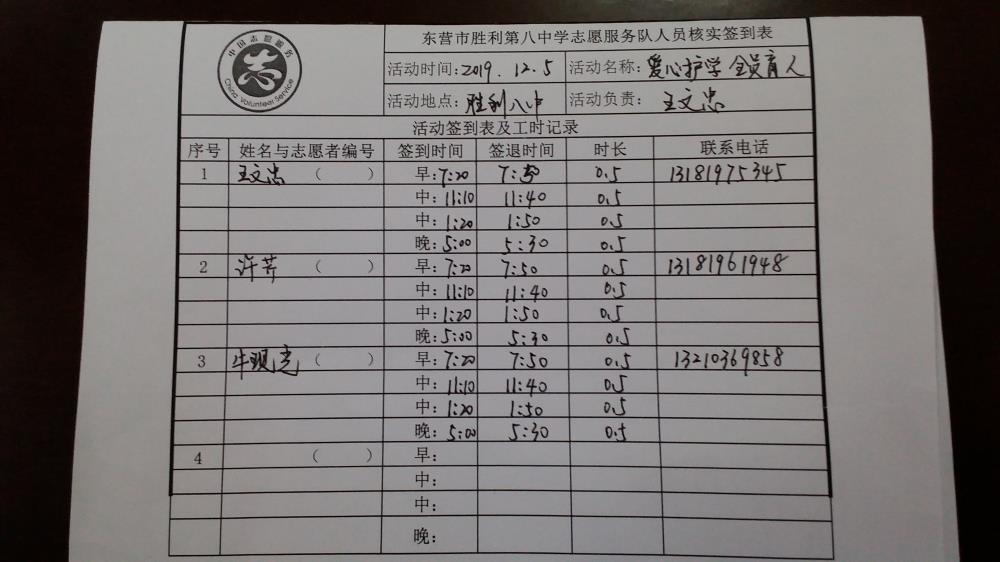 中国志愿服务
志
China Volunteer Service
东营市胜利第八中学志愿服务队人员核实签到表
活动时间:2019.12.5 活动名称:爱心护学 全员育人
活动地点:胜利八中 活动负责:王文忠
活动签到表及工时记录
序号 姓名与志愿者编号 签到时间 签退时间 时长 联系电话
1 王文忠 ( ) 早:7:20 7:50 0.5 13181975345
中:11:10 11:40 0.5
中:1:20 1:50 0.5
晚:5:00 5:30 0.5
2 许芹 ( ) 早:7:20 7:50 0.5 13181961948
中:11:10 11:40 0.5
中:1:20 1:50 0.5
晚:5:00 5:30 0.5
3 牛 ( ) 早:7:20 7:50 0.5 13210369858
中:11:10 11:40 0.5
中:1:20 1:50 0.5
晚:5:00 5:30 0.5
4 ( ) 早:
中:
中:
晚: